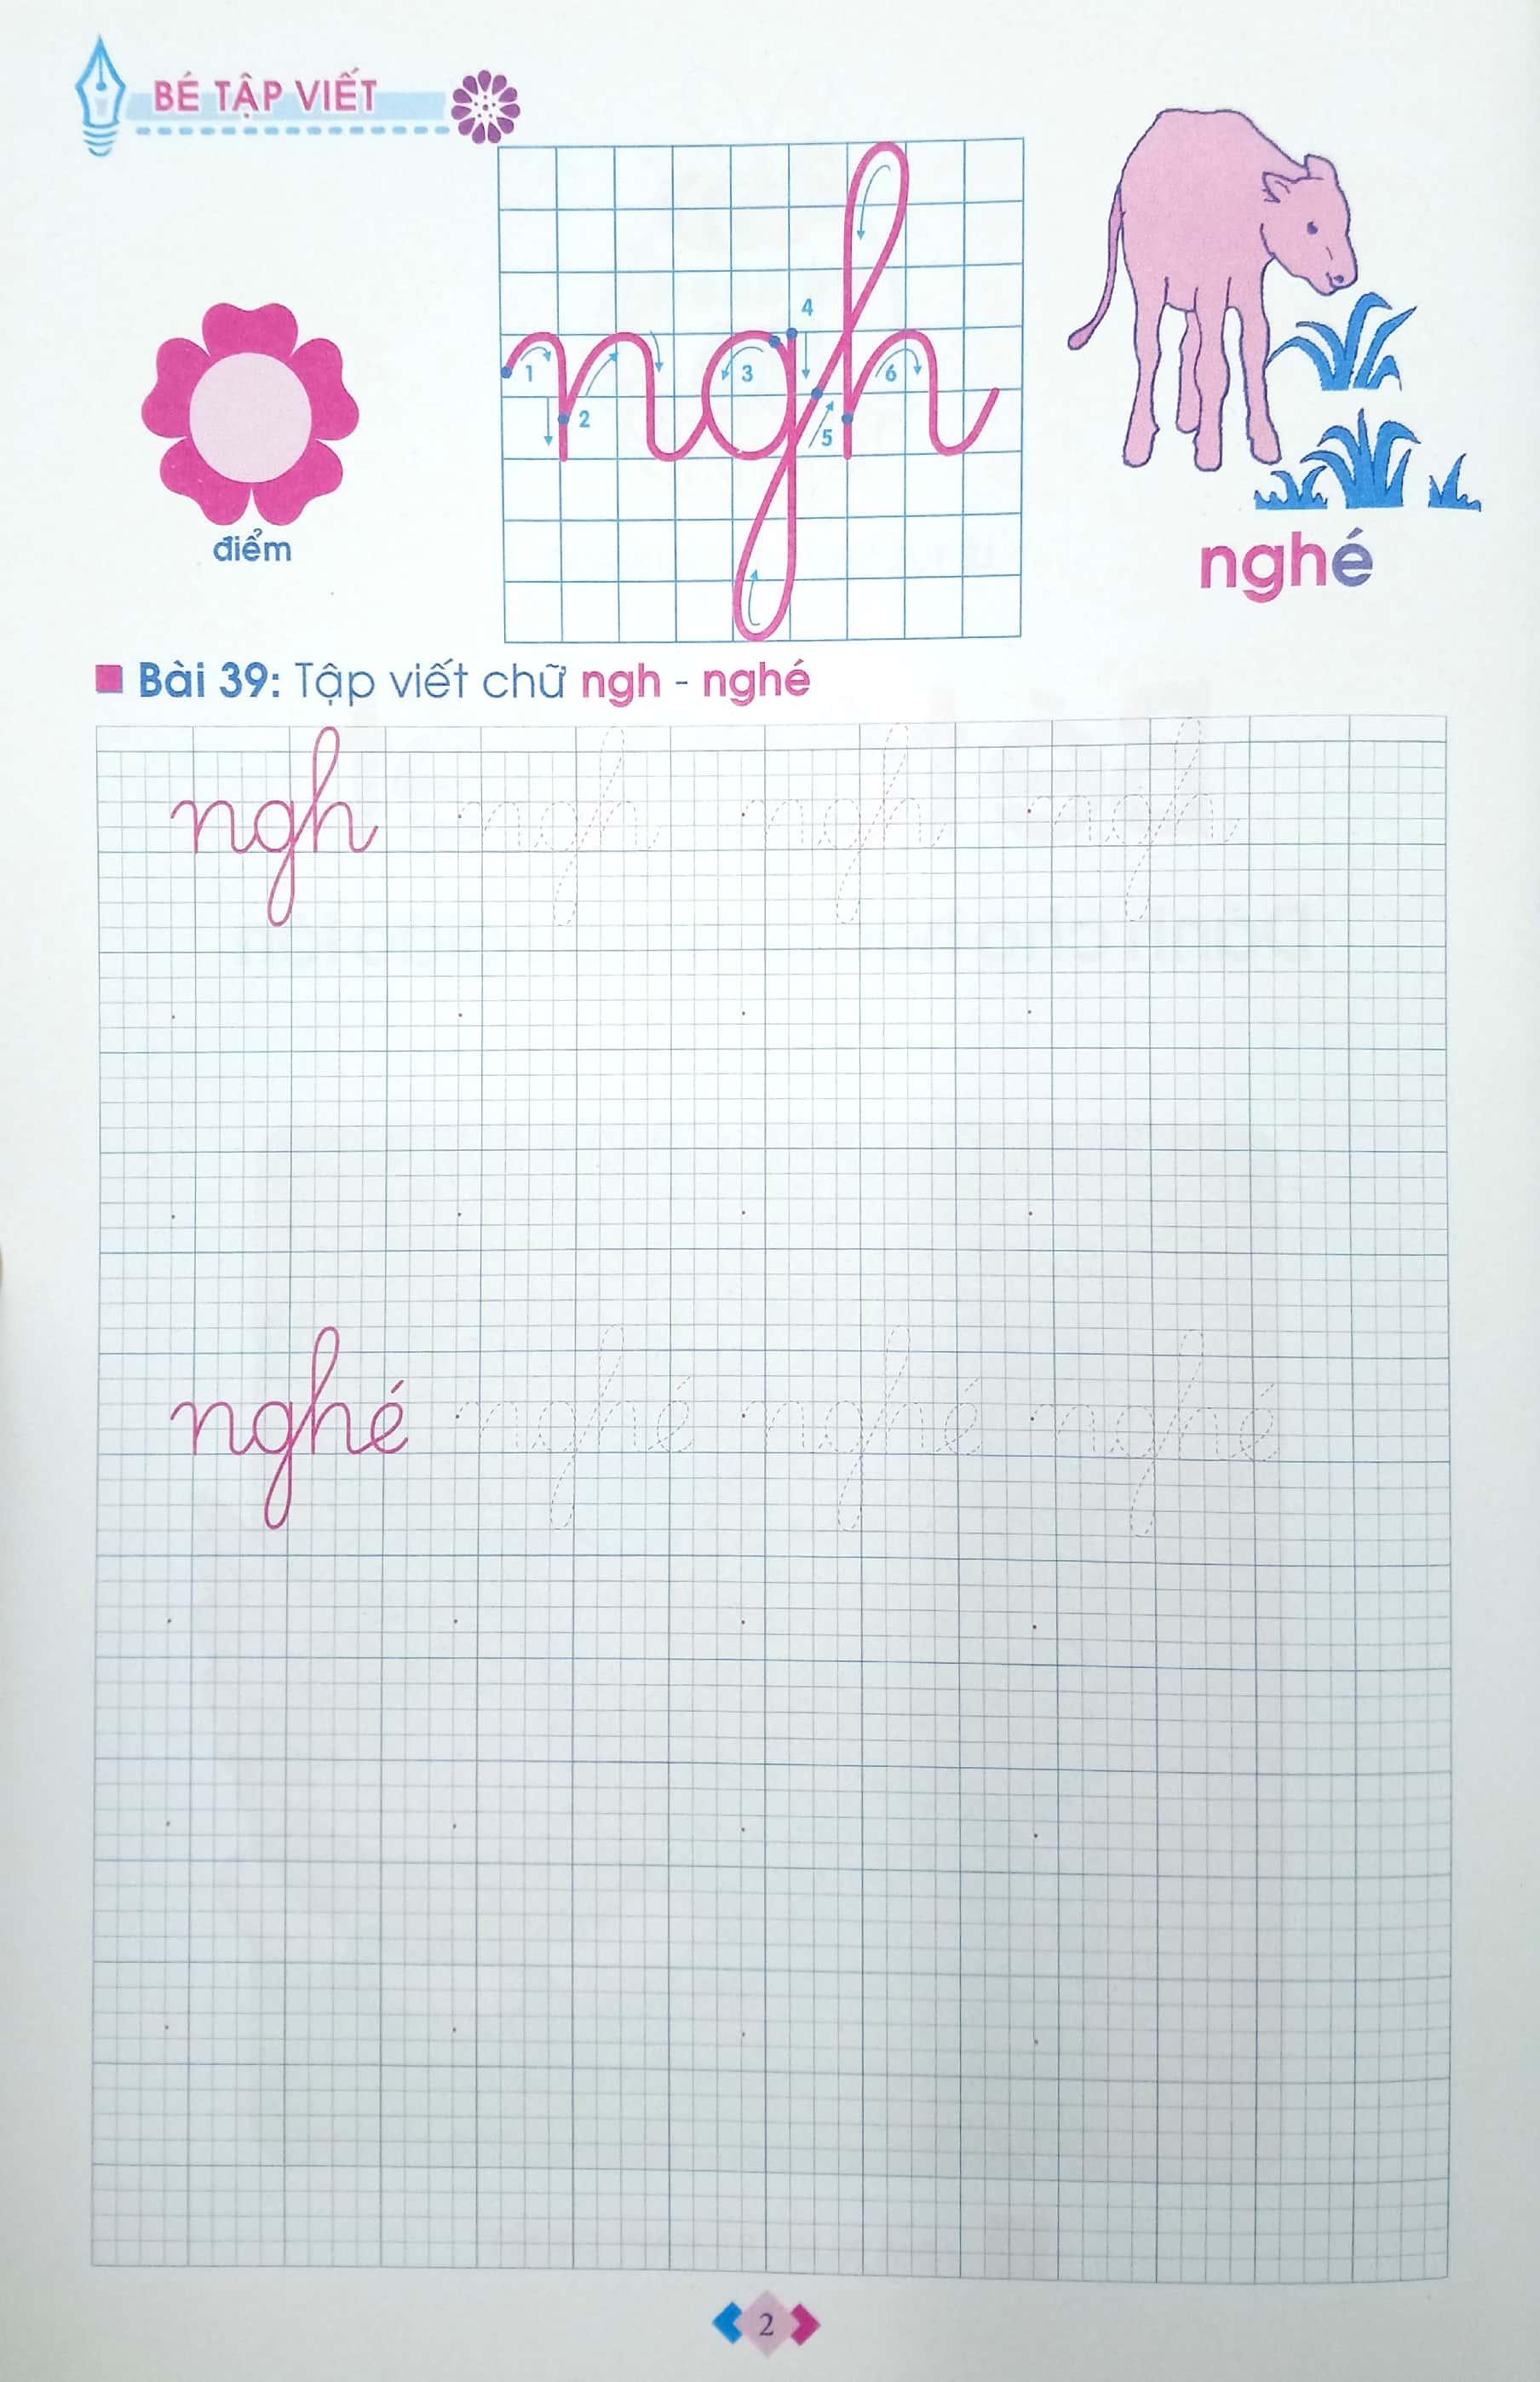 BÉ TẬP VIẾT
4
1
3
6
2
5
điểm
nghé
ngh
Bài 39: Tập viết chữ ngh - nghé
ngh ngh ngh ngh
nghé nghé nghé nghé
2